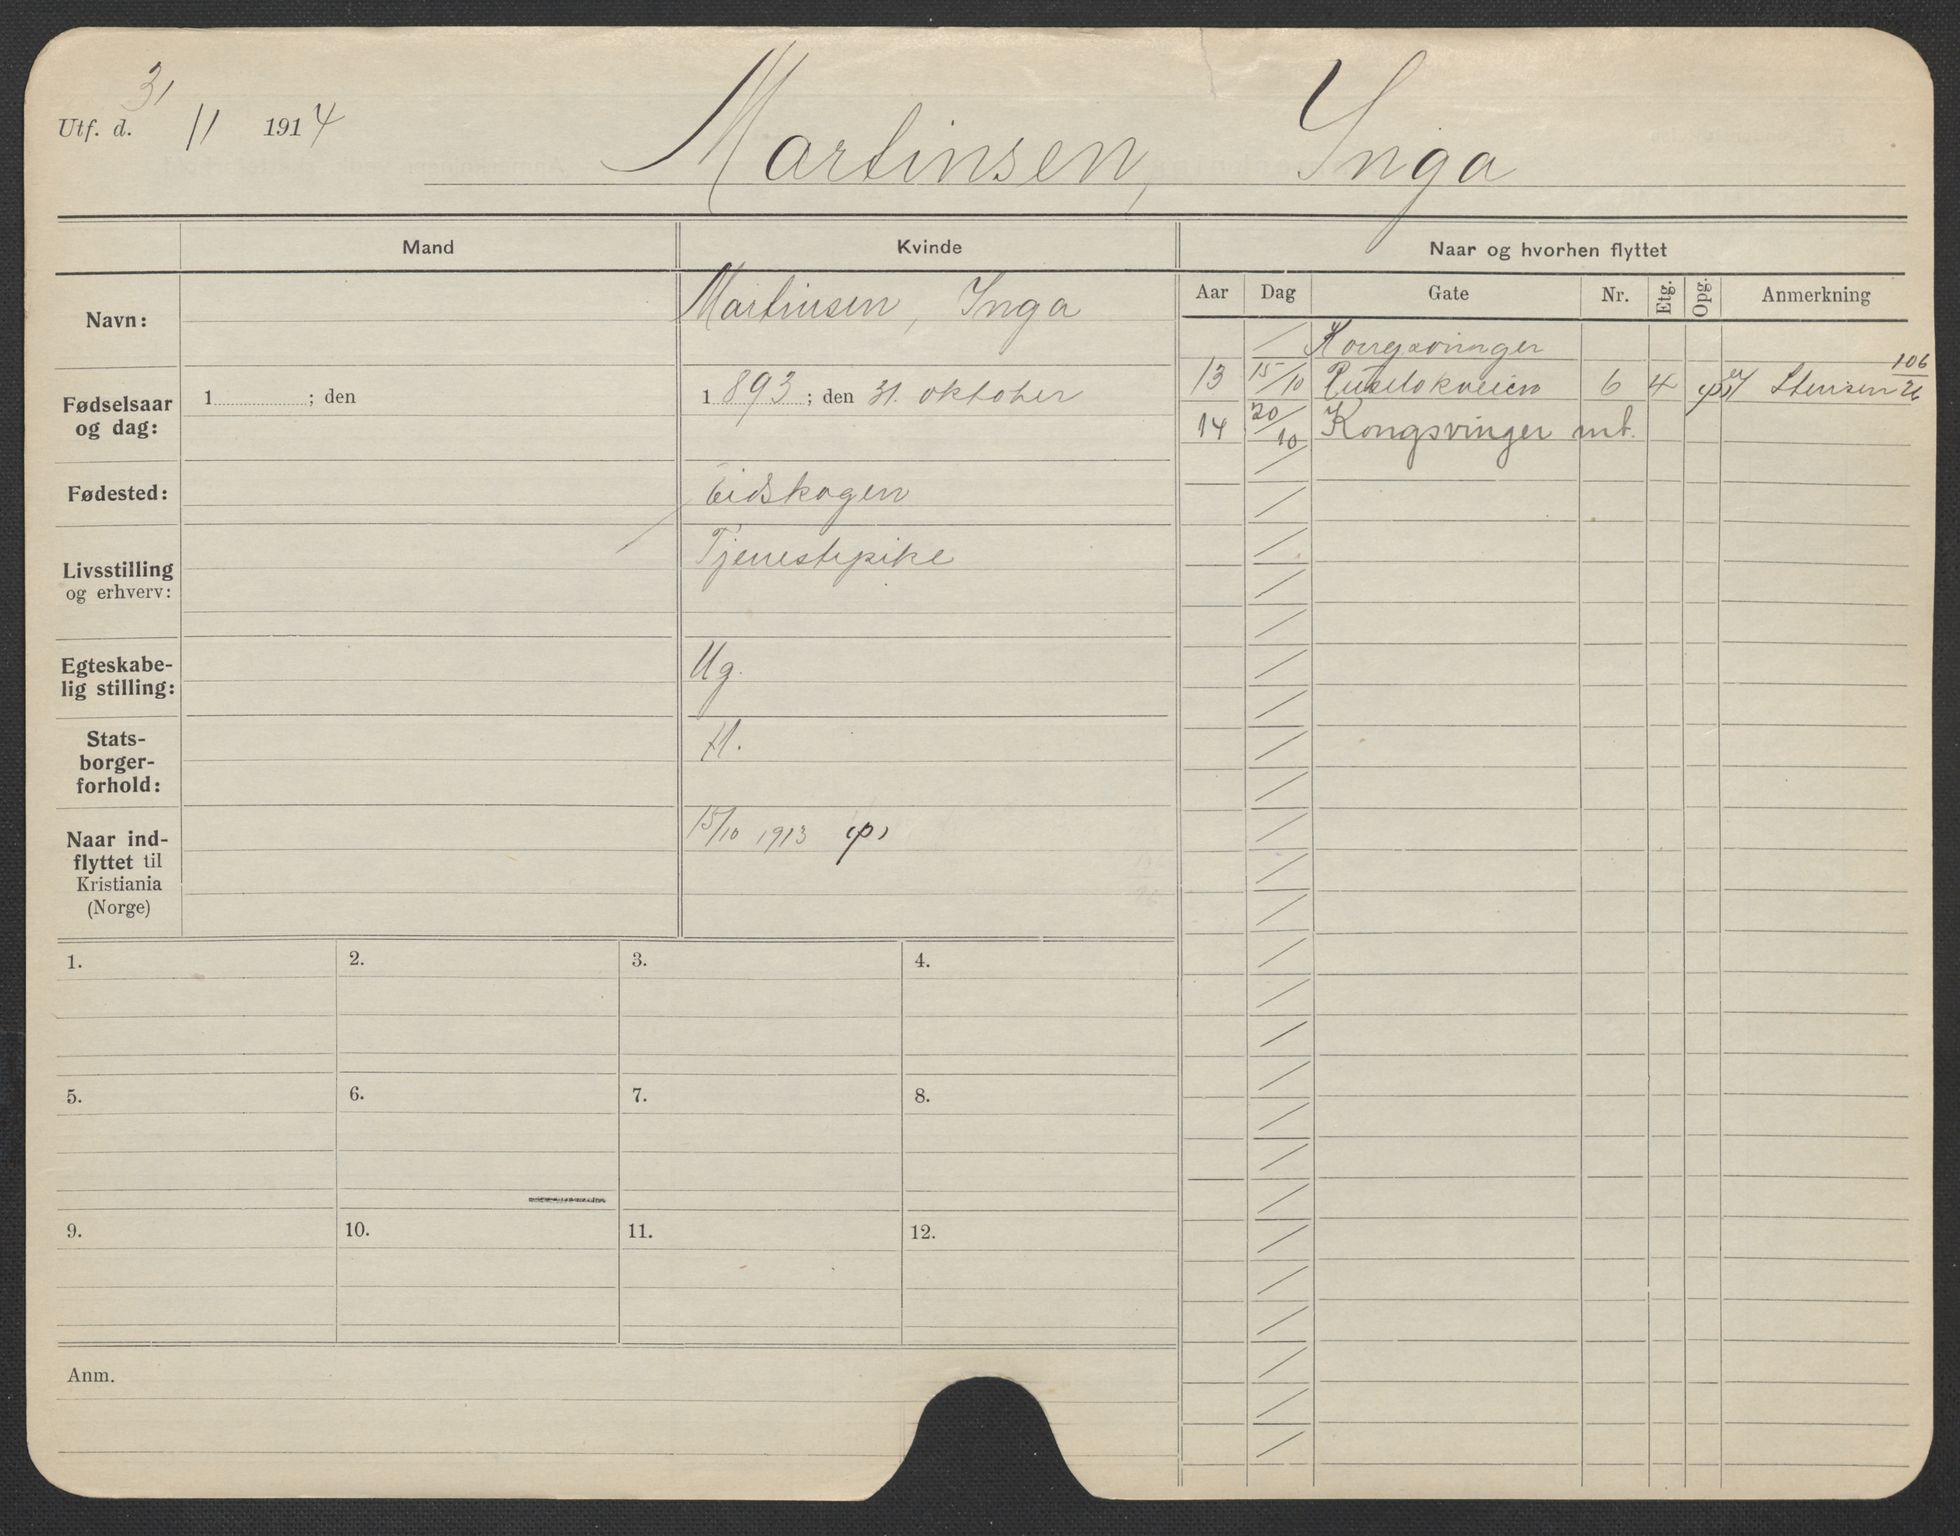 Utf. d. 3/11 1914
Martinsen, Inga
Mand
Kvinde
Naar og hvorhen flyttet
Navn:
Martinsen, Inga
Fødselsaar
og dag:
1 ; den
1893; den 31. oktober
Fødested:
Eidskogen
Livsstilling
og erhverv:
Tjenestepike
Egteskabe-
lig stilling:
Ug.
Stats-
borger-
forhold:
N.
Naar ind-
flyttet til
Kristiania
(Norge)
15/10 1913 (p)
Aar Dag Gate Nr. Etg. Opg. Anmerkning
Kongsvinger
13 15/10 Ruseløkveien 6 4 (ps) Stensen 106/26
14 20/10 Kongsvinger mt.
1. 2. 3. 4.
5. 6. 7. 8.
9. 10. 11. 12.
Anm.